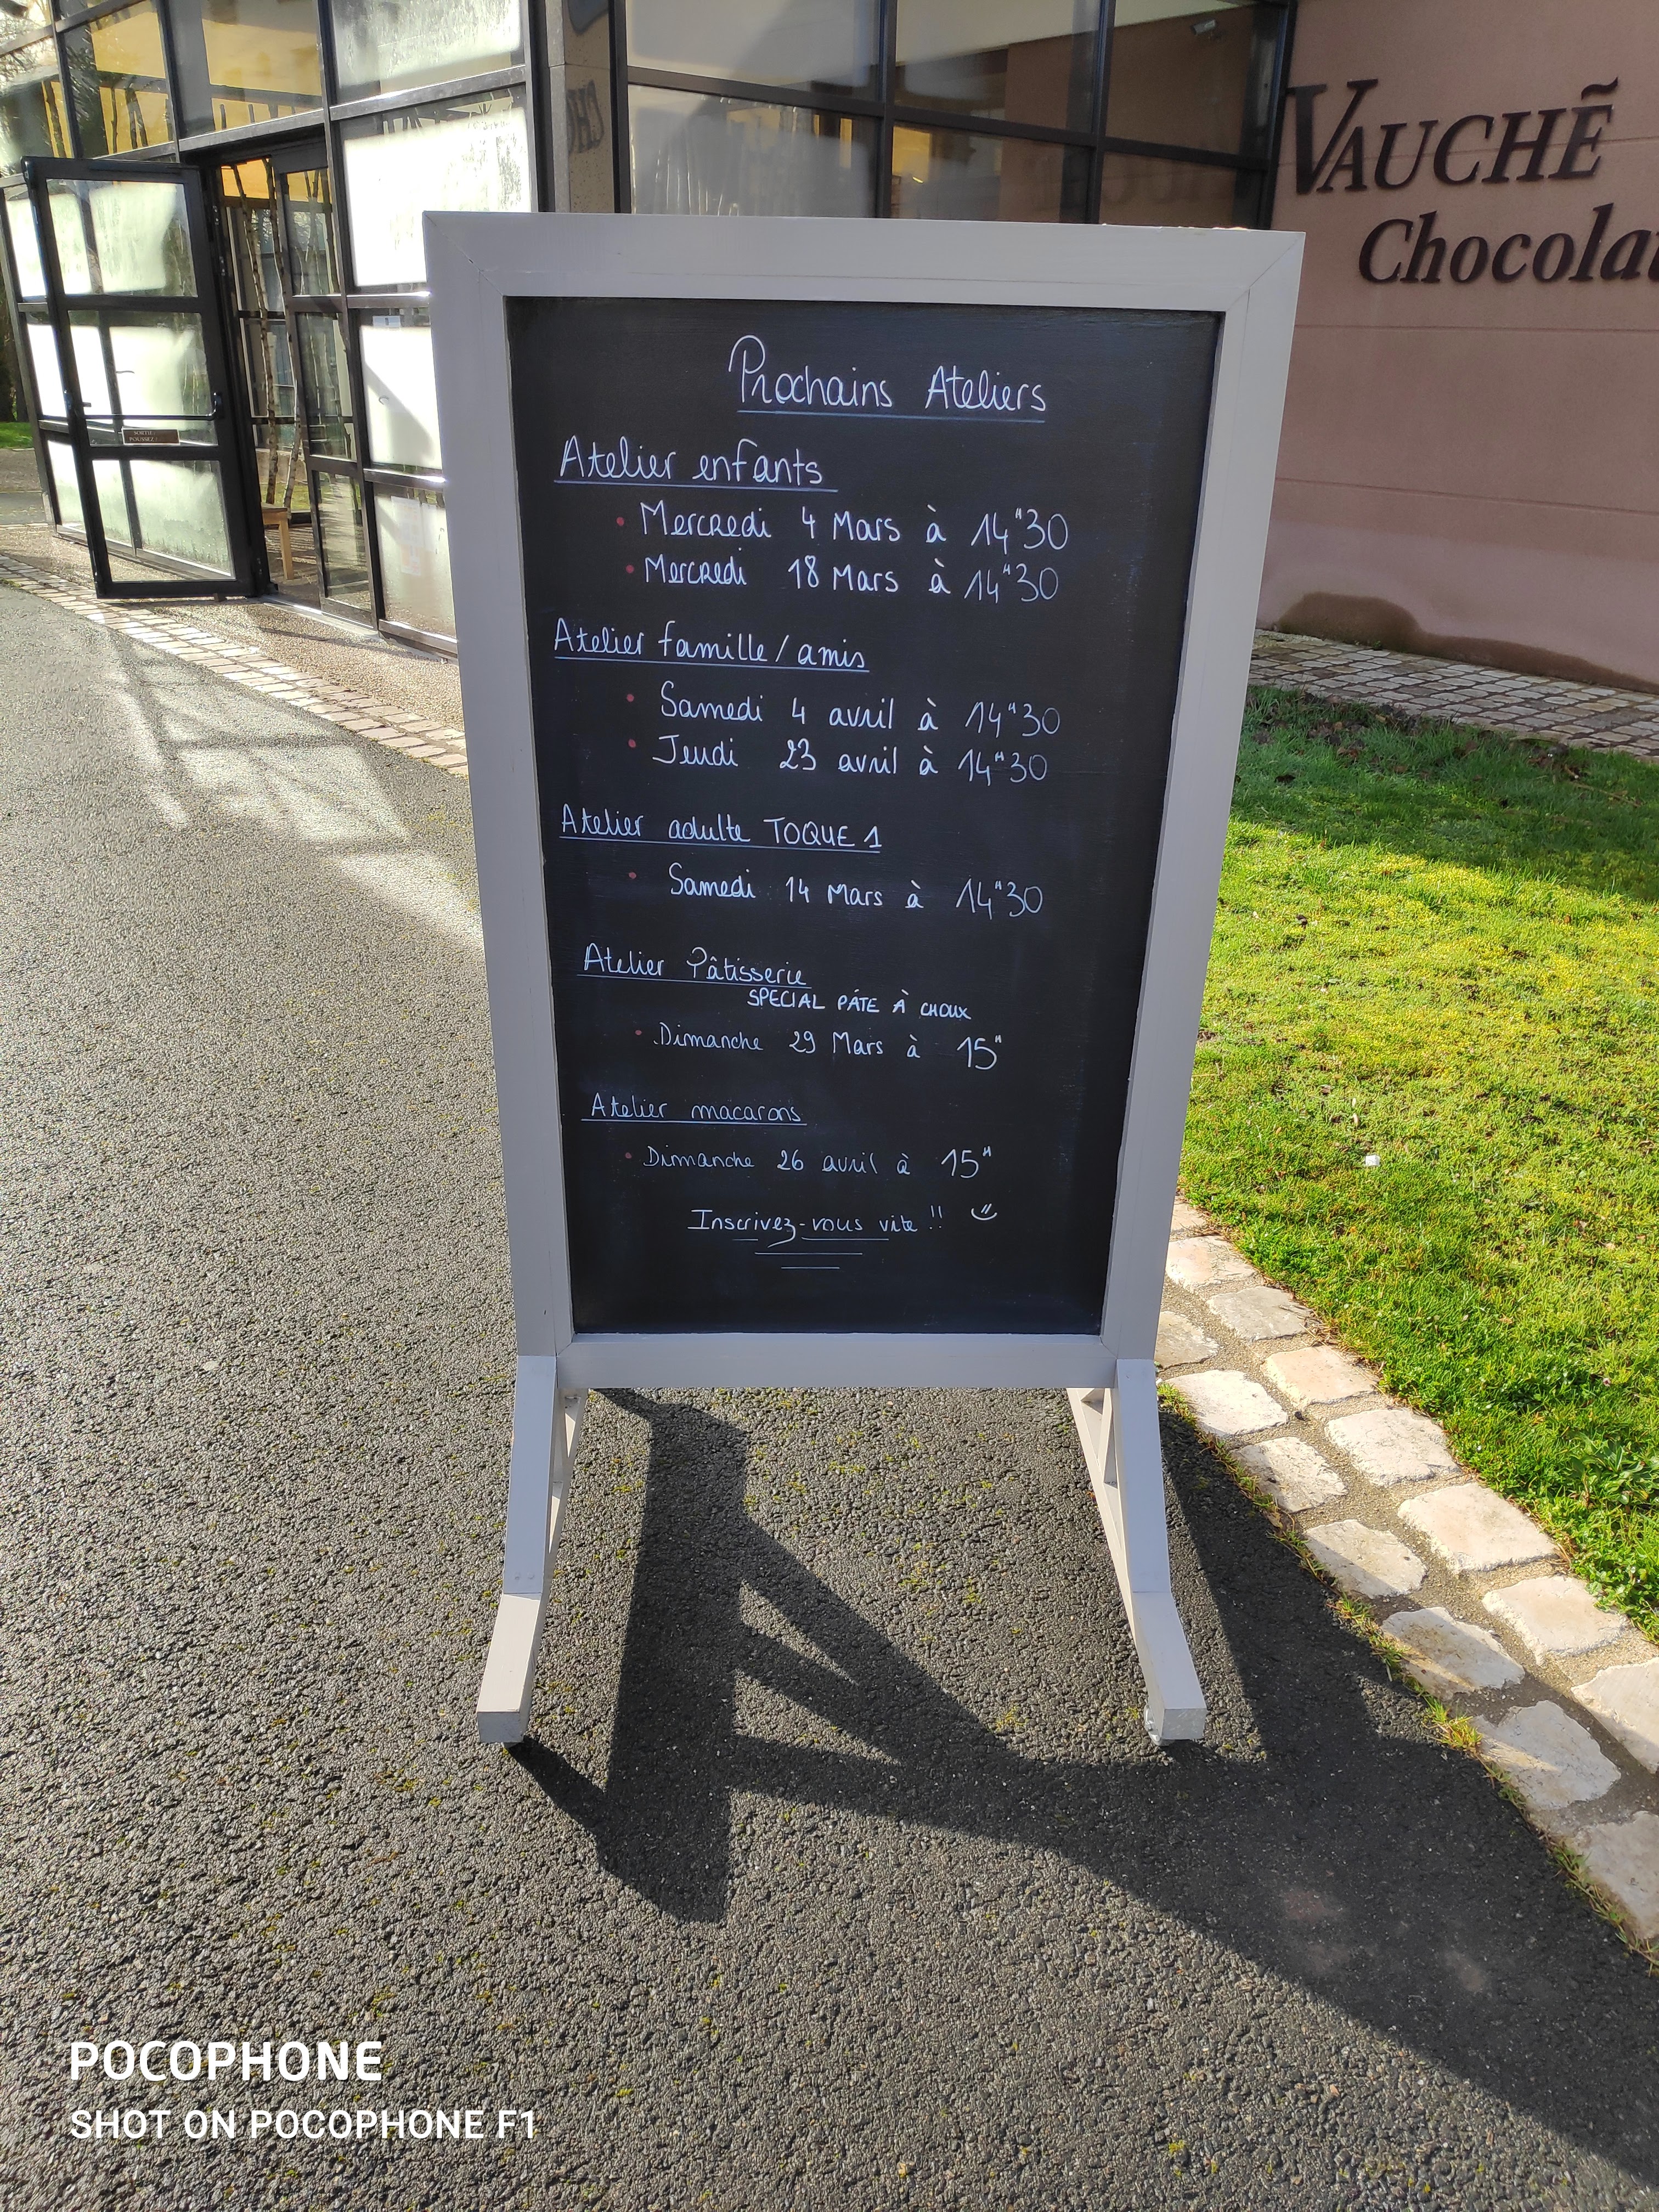 VAUCHẼ
Chocolat
Prochains Ateliers
Atelier enfants
• Mercredi 4 Mars à 14H30
• Mercredi 18 Mars à 14H30
Atelier famille / amis
• Samedi 4 avril à 14H30
• Jeudi 23 avril à 14H30
Atelier adulte TOQUE 1
• Samedi 14 Mars à 14H30
Atelier Pâtisserie
SPECIAL PÂTE À CHOUX
• Dimanche 29 Mars à 15H
Atelier macarons
• Dimanche 26 avril à 15H
Inscrivez-vous vite !!
SORTIE
POUSSEZ !
POCOPHONE
SHOT ON POCOPHONE F1